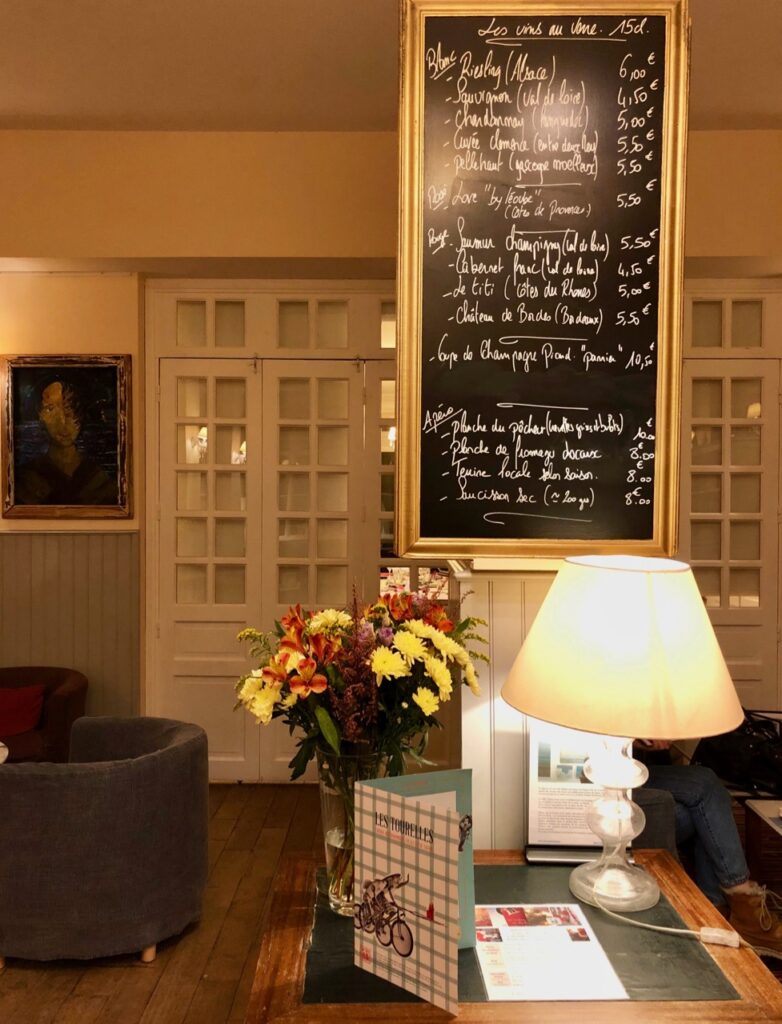 Les vins au verre. 15cl.
Blanc
- Riesling (Alsace) 6,00€
- Sauvignon (Val de loire) 4,50€
- Chardonnay 5,00€
- Cuvée clemence (entre deux Mers) 5,50€
- pellehaut (gascogne moelleux) 5,50€
Rosé
- Love "by léoube" 5,50€
(Côtes de Provence)
Rouge
- Saumur champigny (Val de loire) 5,50€
- Cabernet franc (Val de loire) 4,50€
- Le titi (Côtes du Rhones) 5,00€
- Château de Bordes (Bordeaux) 5,50€
- Coupe de Champagne 10,50€
Apéro
- planche du pêcheur €
- Planche de fromages locaux 8.00€
- Terrine locale selon saison. 8.00€
- Saucisson sec (~200grs) 8.00€
LES TOURELLES